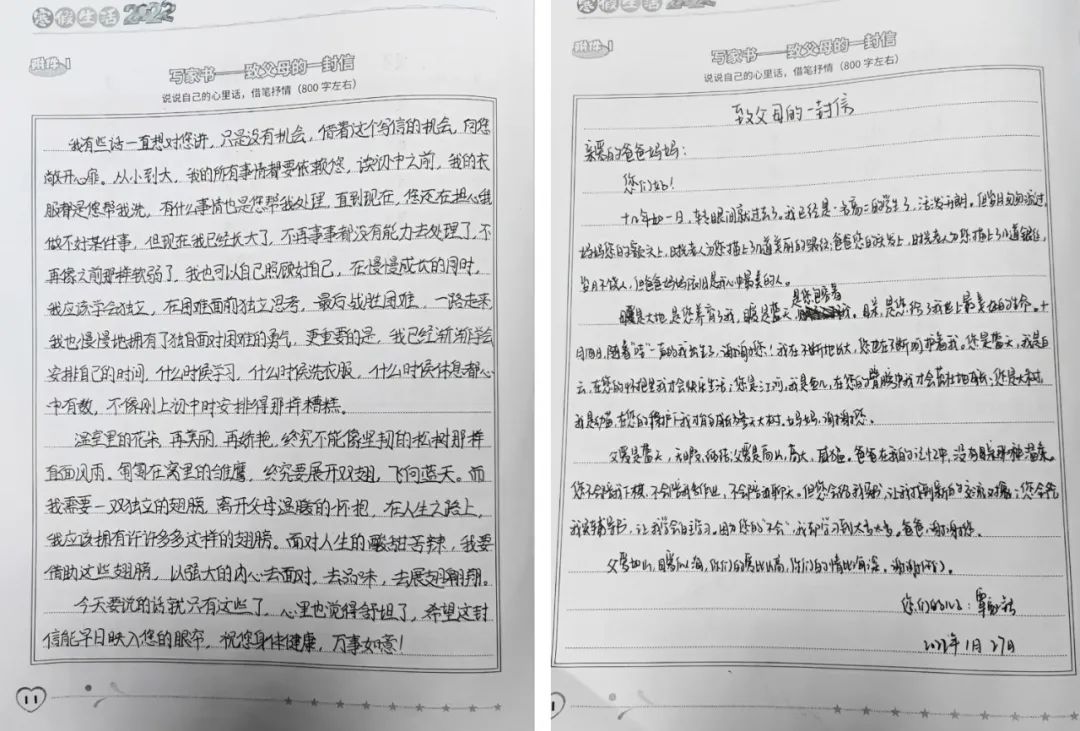 寒假生活2022
附件1
写家书——致父母的一封信
说说自己的心里话，借笔抒情（800字左右）
我有些话一直想对您讲，只是没有机会，借着这个写信的机会，向您
敞开心扉。从小到大，我的所有事情都要依赖您，读初中之前，我的衣
服都是您帮我洗，有什么事情也是您帮我处理，直到现在，您还在担心我
做不好某件事，但现在我已经长大了，不再事事都没有能力去处理了，不
再像之前那样软弱了，我也可以自己照顾好自己，在慢慢成长的同时，
我应该学会独立，在困难面前独立思考，最后战胜困难，一路走来
我也慢慢地拥有了独自面对困难的勇气，更重要的是，我已经渐渐学会
安排自己的时间，什么时候学习，什么时候洗衣服，什么时候休息都心
中有数，不像刚上初中时安排得那样糟糕。
温室里的花朵，再美丽，再娇艳，终究不能像坚韧的松树那样
直面风雨。匍匐在窝里的雏鹰，终究要展开双翅，飞向蓝天。而
我需要一双独立的翅膀，离开父母温暖的怀抱，在人生之路上，
我应该拥有许许多多这样的翅膀。面对人生的酸甜苦辣，我要
借助这些翅膀，以强大的内心去面对，去品味，去展翅翱翔。
今天要说的话就只有这些了，心里也觉得舒坦了，希望这封
信能早日映入您的眼帘，祝您身体健康，万事如意！
11
寒假生活2022
附件1
写家书——致父母的一封信
说说自己的心里话，借笔抒情（800字左右）
致父母的一封信
亲爱的爸爸妈妈：
您们好！
十几年如一日，转眼间就过去了。我已经是一名高二的学生了，活泼开朗。但岁月匆匆流过，
妈妈您的额头上，时光老人为您描上了几道美丽的；爸爸您的头发上，时光老人为您描上了几道银丝，
岁月不饶人，但爸爸妈妈依旧是我心中最美的人。
母爱是大地，是您养育了我，母爱是蓝天，是您呵护着我。母亲，是您给了我世上最美好的生命。十
月 日，随着"哇"一声的我出生了，谢谢您！我在不断地长大，您也在不断呵护着我。您是蓝天，我是白
云，在您的怀抱里我才会快乐生活；您是江河，我是鱼儿，在您的 我才会茁壮地成长；您是大树，
我是幼苗，在您的 下我才能成为参天大树。妈妈，谢谢您。
父爱是蓝天，无暇，纯洁；父爱是高山，高大，威猛。爸爸在我的记忆中，没有母亲那种温柔。
您不会陪我下棋，不会陪我写作业，不会陪我聊天。但您会给我，让我找到新的交流对象；您会给
我买辅导书，让我学会自主学习，因为您的"不会"，我却学习到太多太多。爸爸，谢谢您。
父爱如山，母爱似海，你们的爱比山高，你们的情比海深。谢谢你们。
您们的儿子：覃
2022年1月27日